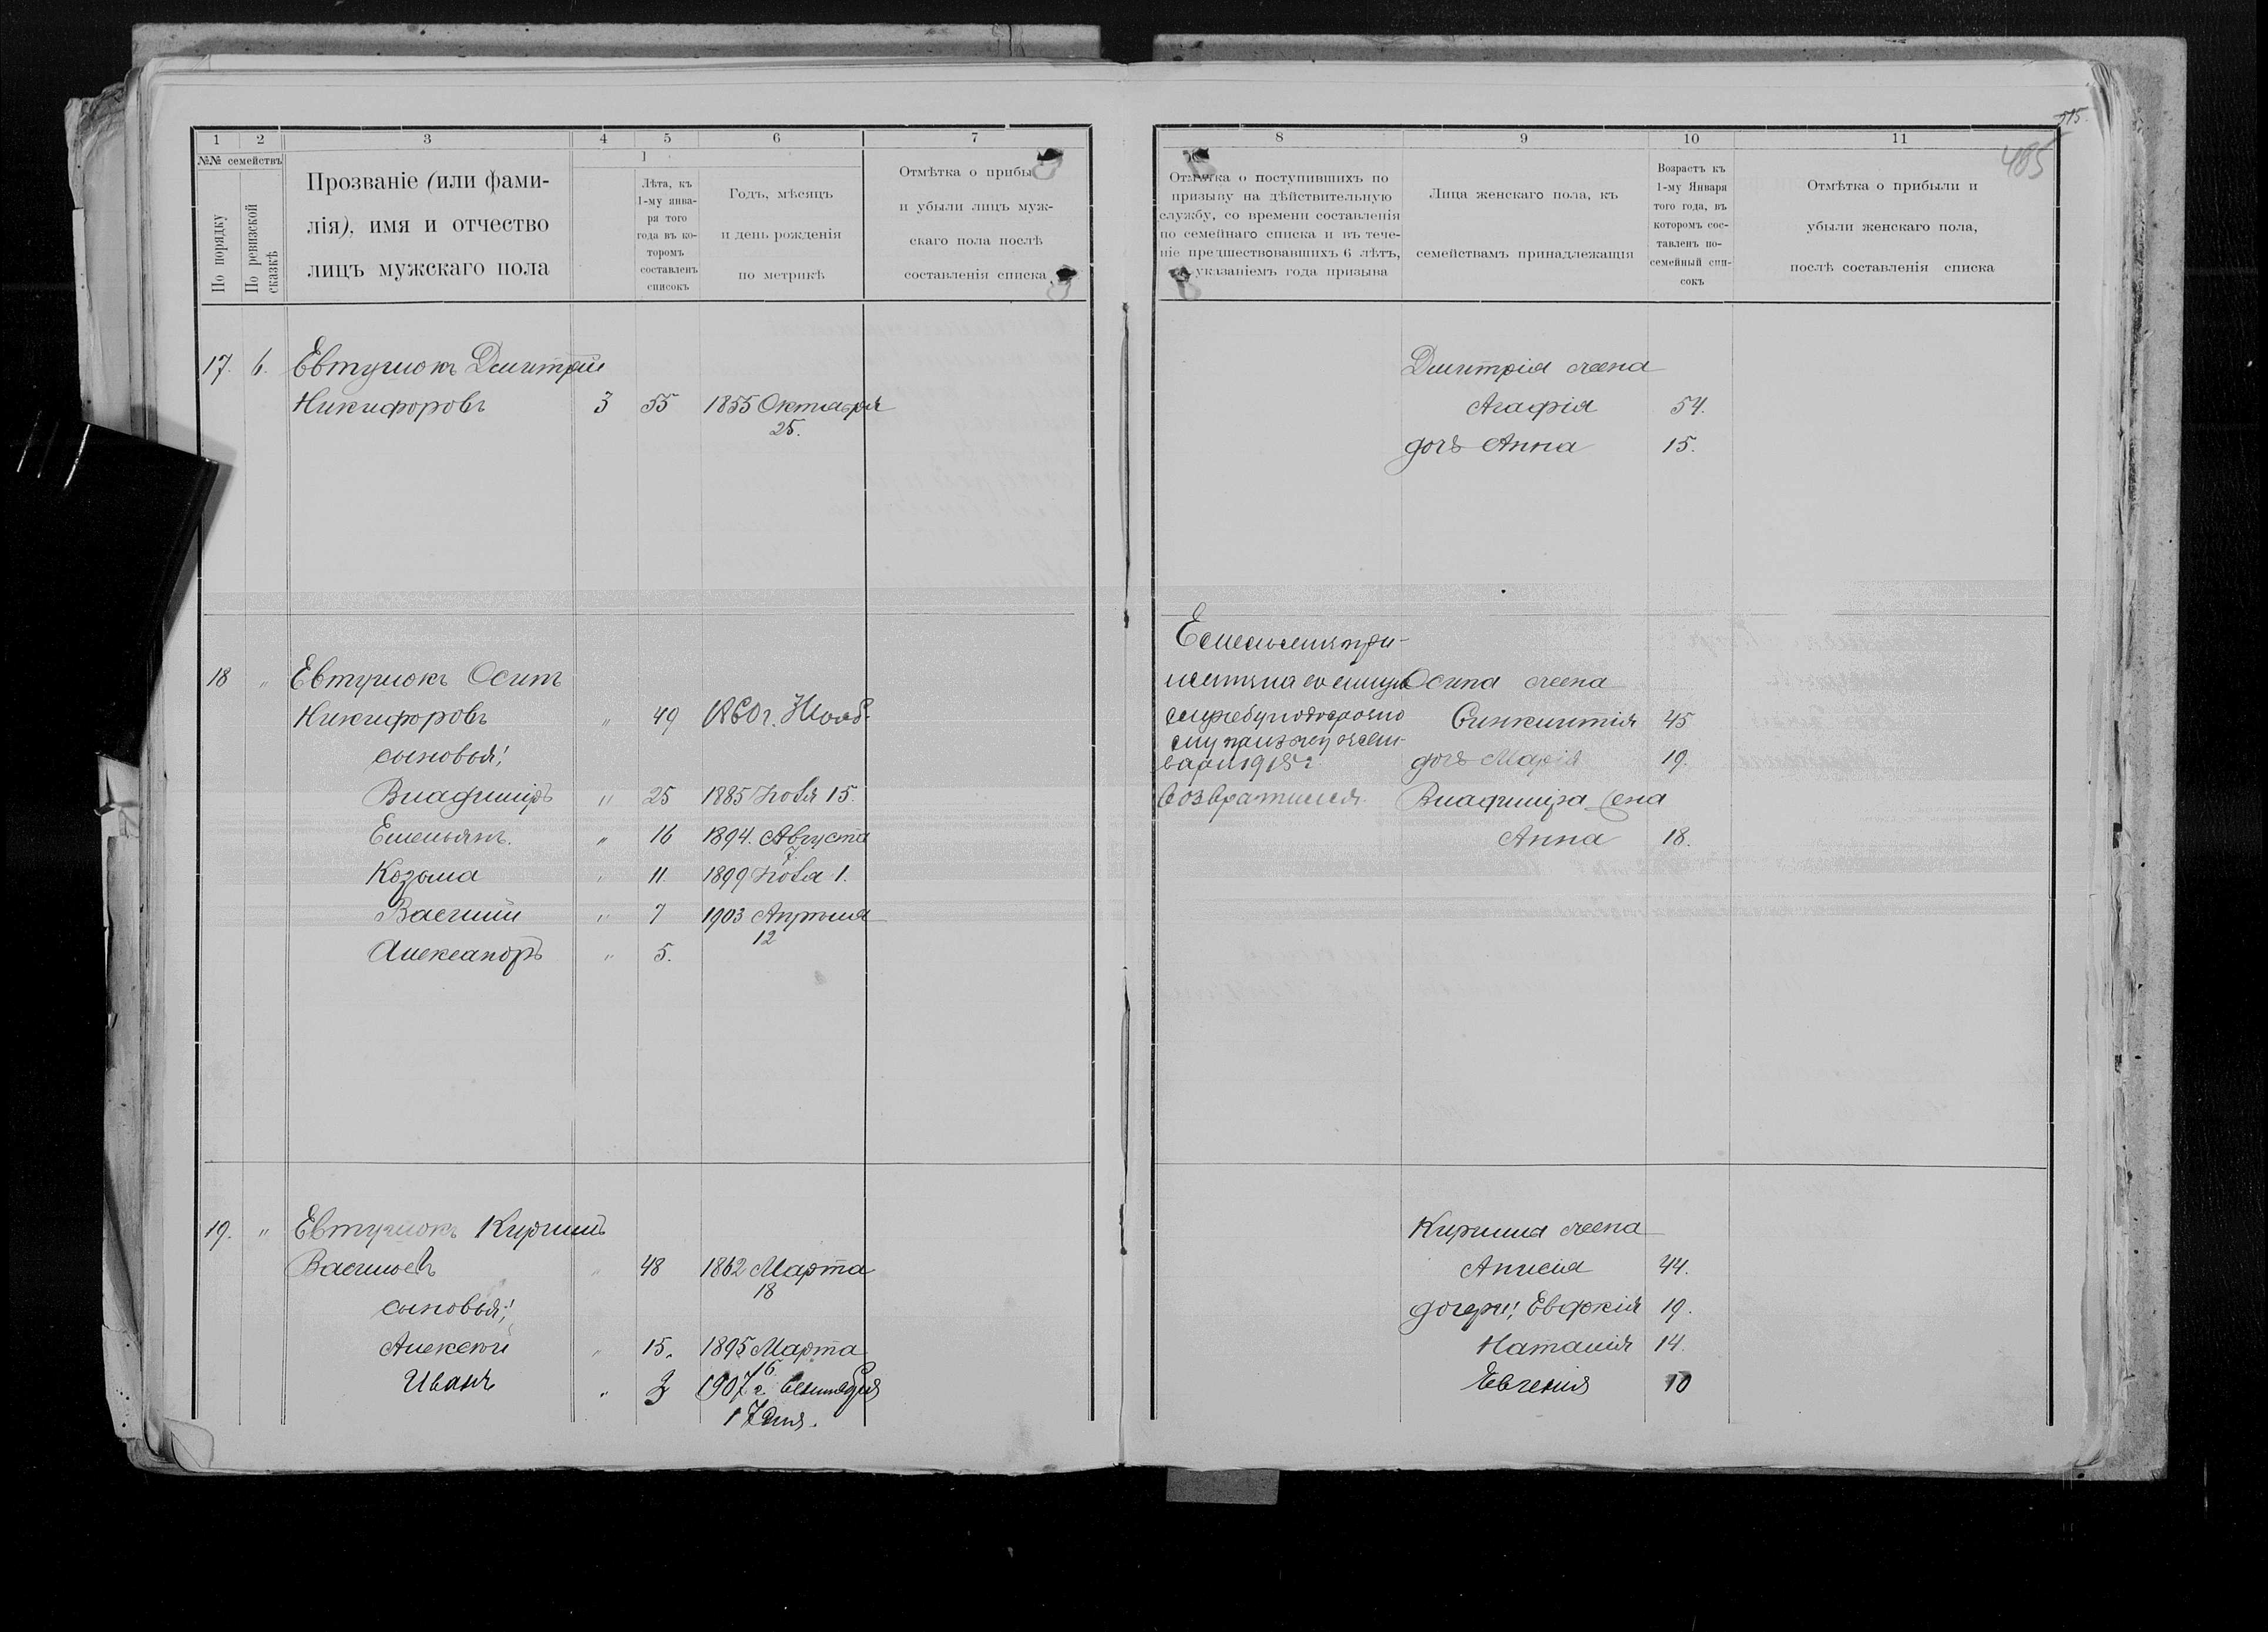 515.
485
1 2 3 4 5 6 7
№№ семействъ
По порядку
По ревизской сказкѣ
Прозваніе (или фами-
лія), имя и отчество
лицъ мужскаго пола
1
Лѣта, къ
1-му янва-
ря того
года въ ко-
торомъ
составленъ
списокъ
Годъ, мѣсяцъ
и день рожденія
по метрикѣ
Отмѣтка о прибы
и убыли лицъ муж-
скаго пола послѣ
составленія списка
8 9 10 11
Отмѣтка о поступившихъ по
призыву на дѣйствительную
службу, со времени составленія
по семейнаго списка и въ тече-
ніе предшествовавшихъ 6 лѣтъ,
указаніемъ года призыва
Лица женскаго пола, къ
семействамъ принадлежащія
Возрастъ къ
1-му Января
того года, въ
которомъ сос-
тавленъ по-
семейный спи-
сокъ
Отмѣтка о прибыли и
убыли женскаго пола,
послѣ составленія списка
17. 6. Евтушокъ Дмитрій
Никифоровъ 3 55 1855 Октября
25.
Дмитрія жена
Агафія 54.
дочь Анна 15.
18 „ Евтушокъ Осипъ
Никифоровъ „ 49 1860 г.
сыновья:
Владиміръ „ 25 1885 Ноября 15.
Емельянъ. „ 16 1894. Августа
7.
Козьма „ 11. 1899 Ноября 1.
Василій „ 7 1903 Апрѣля
12
Александръ „ 5.
Емельянъ при-
нятъ на военную
службу
1915 г.
возвратился.
Осипа жена
Синклитія 45
дочь Марія 19.
Владиміра жена
Анна 18.
19. „ Евтушокъ Кириллъ
Васильевъ „ 48 1862 Марта
18
сыновья:
Алексѣй „ 15. 1895 Марта
16
Иванъ „ 3 1907 г. Сентября
17 дня.
Кирилла жена
Анисія 44.
дочери: Евдокія 19.
Наталія 14.
Евгенія 10